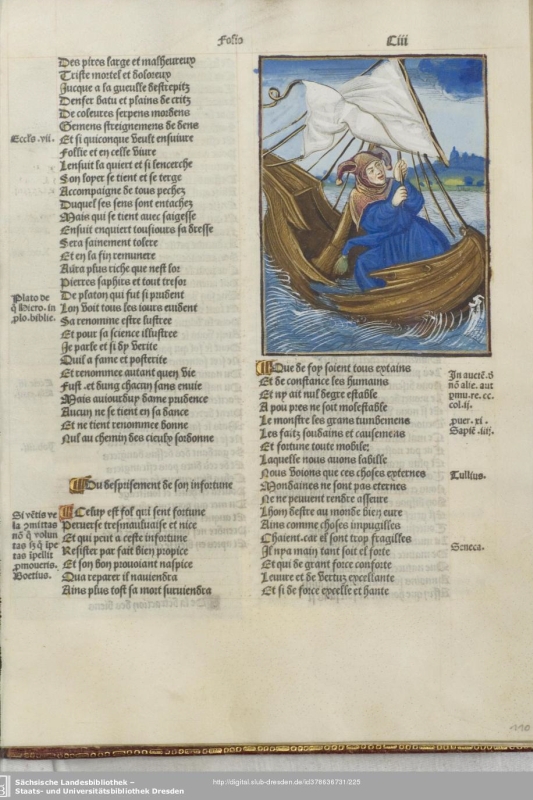 Folio
Ciii
Des pires large et malheureux
Triste mortel et doloreux
Jucque a la gueulle destrepitz
Denfer batu et plains de critz
De coleures serpens mordens
Gemens streignemens de dens
Eccls .vii.
Et si quiconque veult ensuiure
Follie et en celle viure
Lensuit la quiert et si lencerche
Son loyer se tient et se terge
Accompaigne de tous pechez
Duquel ses sens sont entachez
Mais qui se tient avec saigesse
Ensuit enquiert tousiours sa dresse
Sera sainement tolere
Et en la fin remunere
Aura plus riche que nest lor
Pierres saphirs et tout tresor
Plato de
q̄ Hiero. in
plo. biblie.
De platon qui fut si prudent
Lon voit tous les iours euident
Sa renomme estre lustree
Et pour sa science illustree
Je parle et si dy verite
Quil a fame et posterite
Et renommee autant quen vie
Fust .et dung chacun sans enuie
Mais auiourduy dame prudence
Aucun ne se tient en sa dance
Et ne tient renommee bonne
Nul au chemin des cieulx sordonne
Du desprisement de son infortune
Si vētis ve
la ꝯmittas
nō q̄ volun
tas
Boetius.
Celuy est fol qui sent fortune
Peruerse tresmauluaise et nice
Et qui peut a ceste infortune
Resister par fait bien propice
Et son bon prouoiant naspice
Qua reparer il nauiendra
Ains plus tost sa mort suruiendra
Que de foy soient tous extains
Et de constance les humains
Et ny ait nul degre estable
A pou pres ne soit molestable
Le monstre les grans tumbemens
Les faitz soudains et causemens
Et fortune toute mobile;
Laquelle nous auons labille
Nous voions que ces choses externes
Mondaines ne sont pas eternes
Ne ne peuuent rendre asseure
Lhom destre au monde bien eure
Ains comme choses impugilles
Chaient.car el sont trop fragilles
Il nya main tant soit el forte
Et qui de grant force conforte
Leuure et de vertuz excellante
Et si de force excelle et hante
col. ij.
ꝓuer. xi.
Sapiē .iiij.
Tullius.
Seneca.
110
Sächsische Landesbibliothek –
Staats- und Universitätsbibliothek Dresden
http://digital.slub-dresden.de/id378636731/225